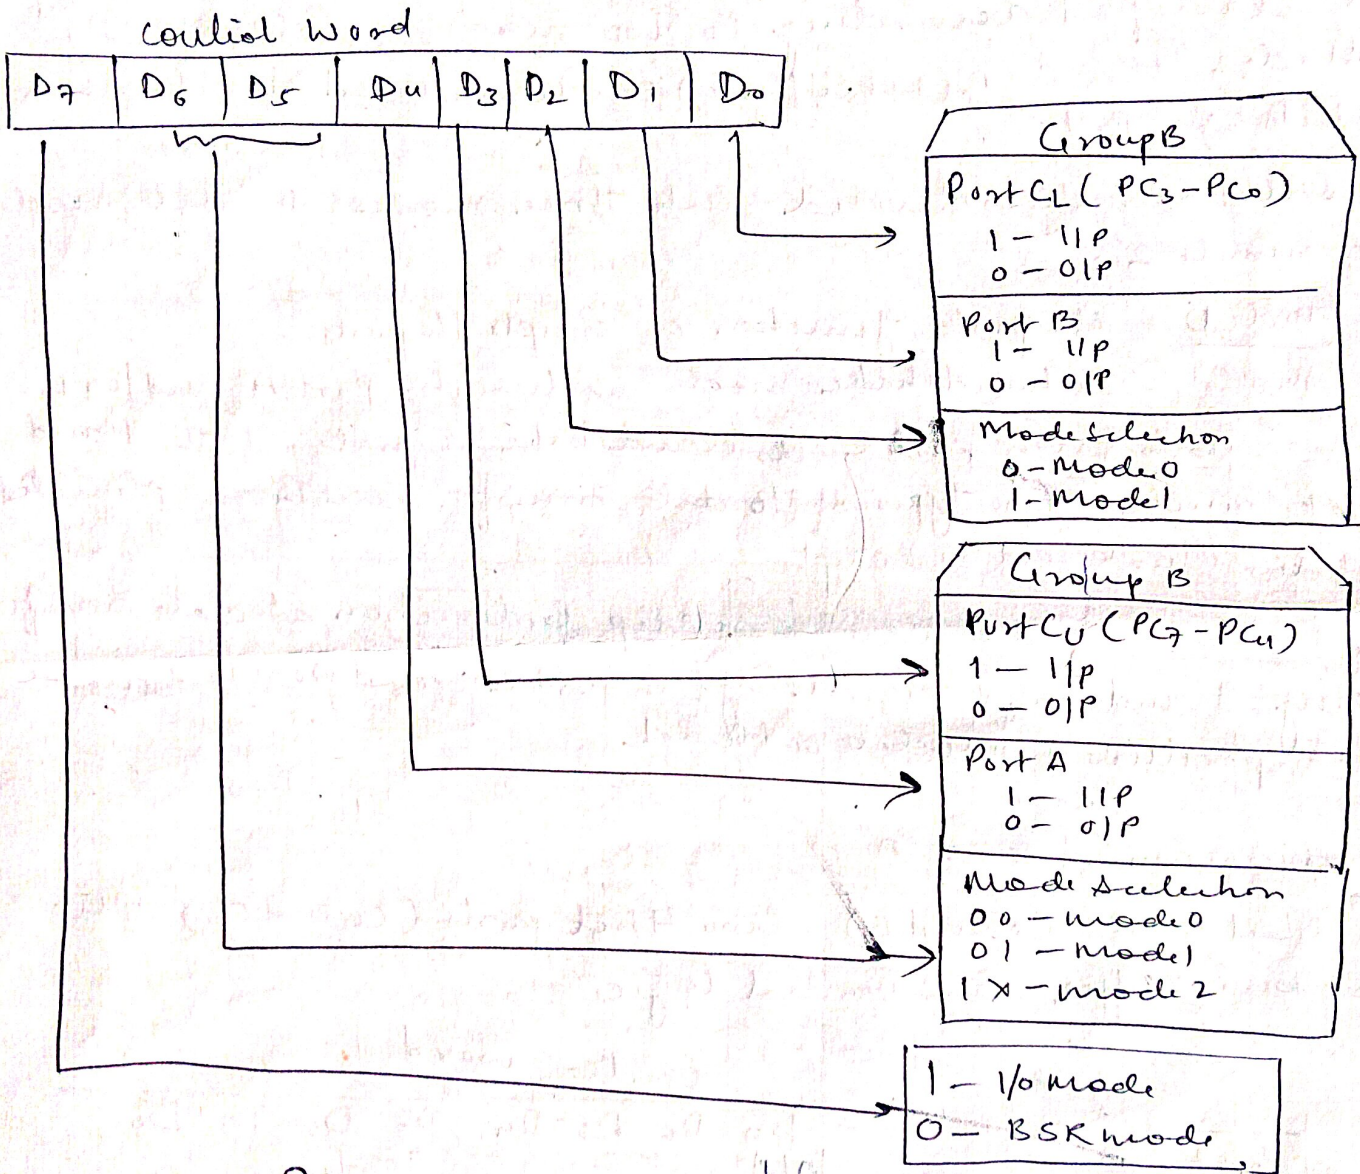 Control Word
D7 D6 D5 D4 D3 D2 D1 D0
Group B
Port CL ( PC3 - PC0 )
1 - I/P
0 - O/P
Port B
1 - I/P
0 - O/P
Mode Selection
0 - Mode 0
1 - Mode 1
Group B
Port CU ( PC7 - PC4 )
1 - I/P
0 - O/P
Port A
1 - I/P
0 - O/P
Mode Selection
00 - mode 0
01 - Mode 1
1X - mode 2
1 - I/O Mode
0 - BSR mode